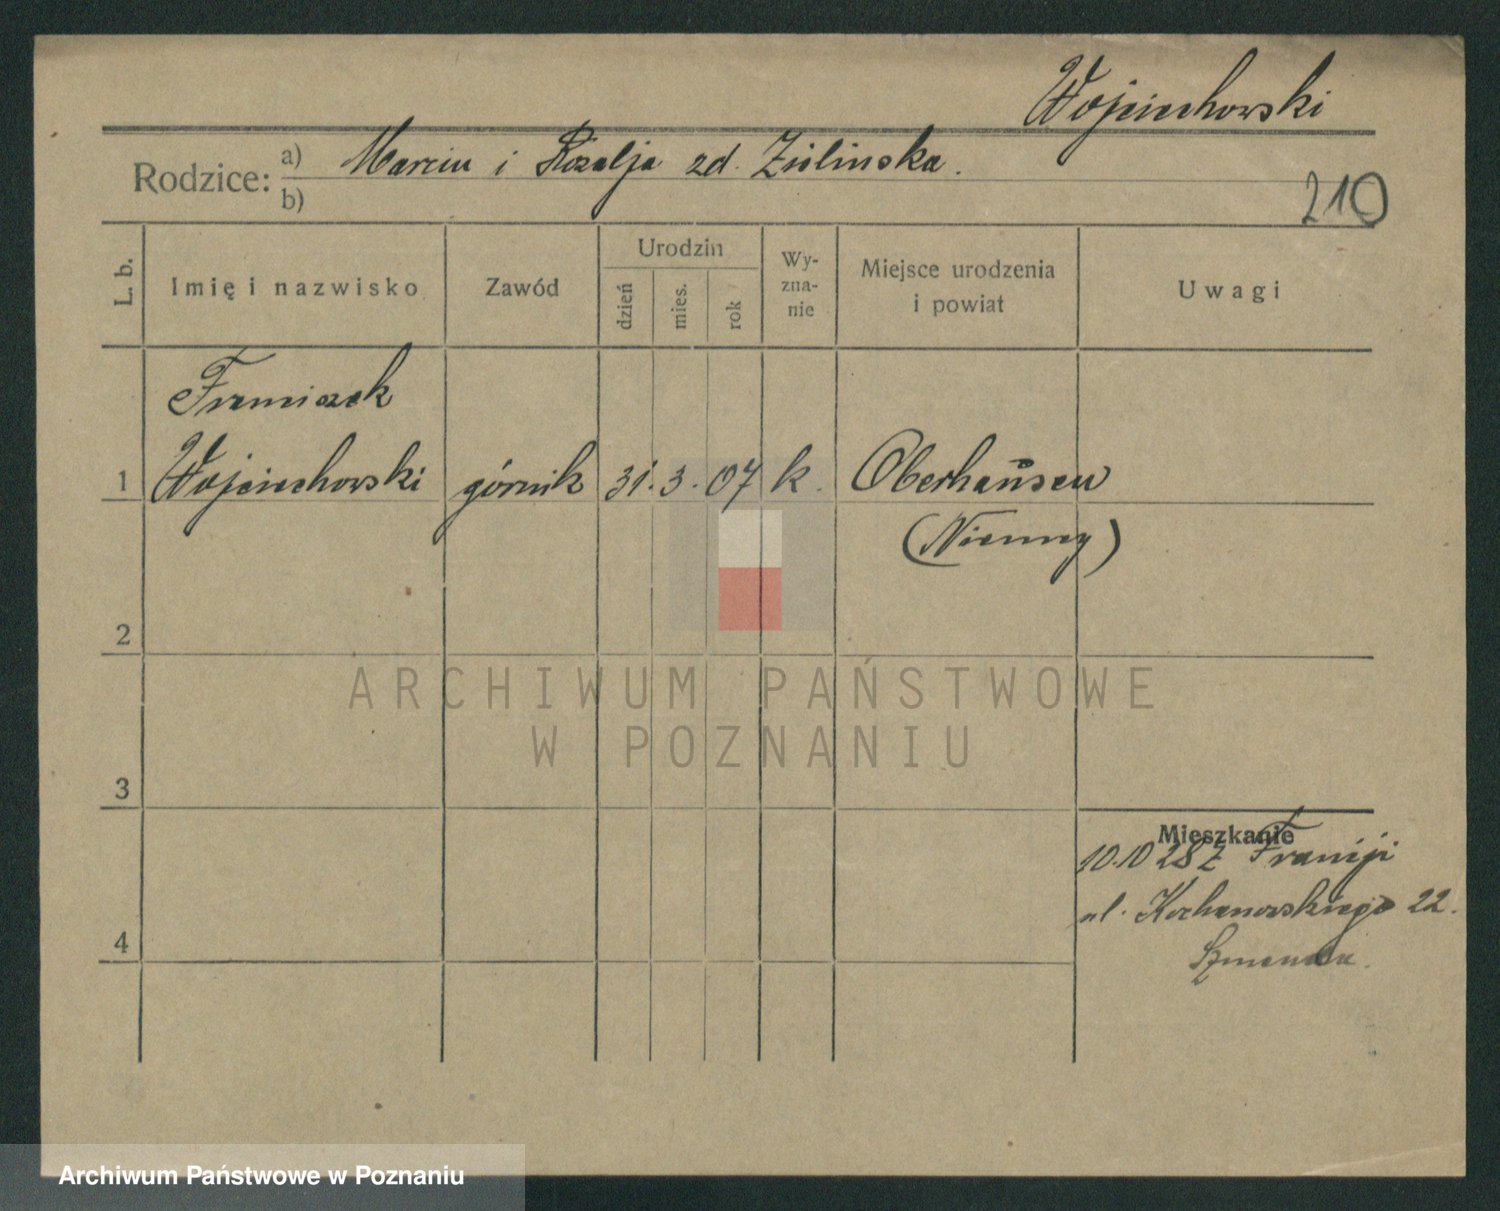 Wojciechowski
Rodzice: a) Marcin i Rozalja zd. Zielinska.
b)
210
L. b.
Imię i nazwisko
Zawód
Urodzin
dzień
mies.
rok
Wy-
zna-
nie
Miejsce urodzenia
i powiat
Uwagi
Franciszek
1 Wojciechowski górnik 31. 3. 07 k. Oberhausen
(Niemcy)
2
ARCHIWUM PAŃSTWOWE
W POZNANIU
3
Mieszkanie
10.10 28 z Francji
ul. Kochanowskiego 22.
4
Archiwum Państwowe w Poznaniu